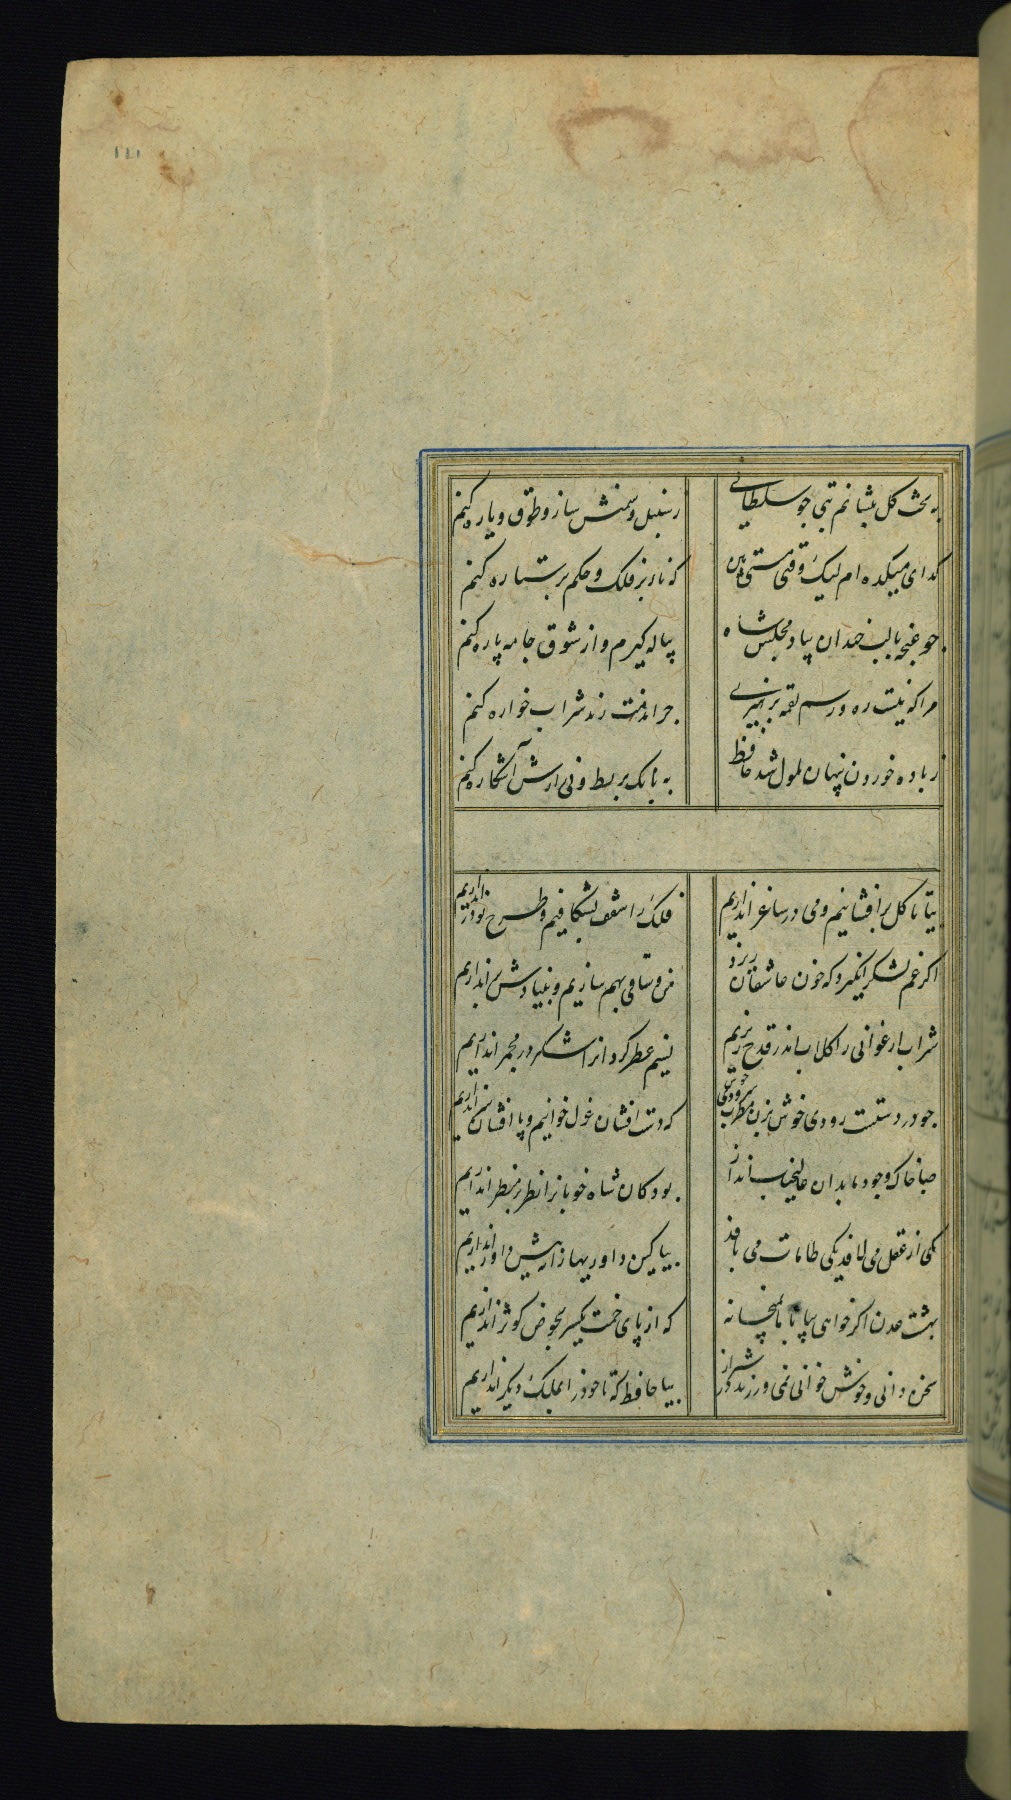 ۱۱۱
به تخت گل بنشانم بتی چو سلطانی
ز سنبل و سمنش ساز و طوق و یاره کنم
گدای میکده ام لیک وقت مستی بین
که ناز بر فلک و حکم بر ستاره کنم
چو غنچه با لب خندان بیاد مجلس شاه
پیاله گیرم و از شوق جامه پاره کنم
مرا که نیست ره و رسم لقمه پرهیزی
چرا مذمت رند شراب خواره کنم
ز باده خوردن پنهان ملول شد حافظ
به بانگ بربط و نی رازش آشکاره کنم
بیا تا گل برافشانیم و می در ساغر اندازیم
فلک را سقف بشکافیم و طرح نو در اندازیم
اگر غم لشکر انگیزد که خون عاشقان ریزد
من و ساقی بهم سازیم و بنیادش براندازیم
شراب ارغوانی را گلاب اندر قدح ریزیم
نسیم عطرگردان را شکر در مجمر اندازیم
چو در دستست رودی خوش بزن مطرب سرودی خوش
که دست افشان غزل خوانیم و پا افشان سر اندازیم
صبا خاک وجود ما بدان عالیجناب انداز
بود کان شاه خوبانرا نظر بر منظر اندازیم
یکی از عقل می لافد یکی طامات می بافد
بیا کین داوریها را به پیش داور اندازیم
بهشت عدن اگر خواهی بیا با ما بمیخانه
که از پای خمت یکسر بحوض کوثر اندازیم
سخن دانی و خوش خوانی نمی ورزند در شیراز
بیا حافظ که تا خود را بملک دیگر اندازیم